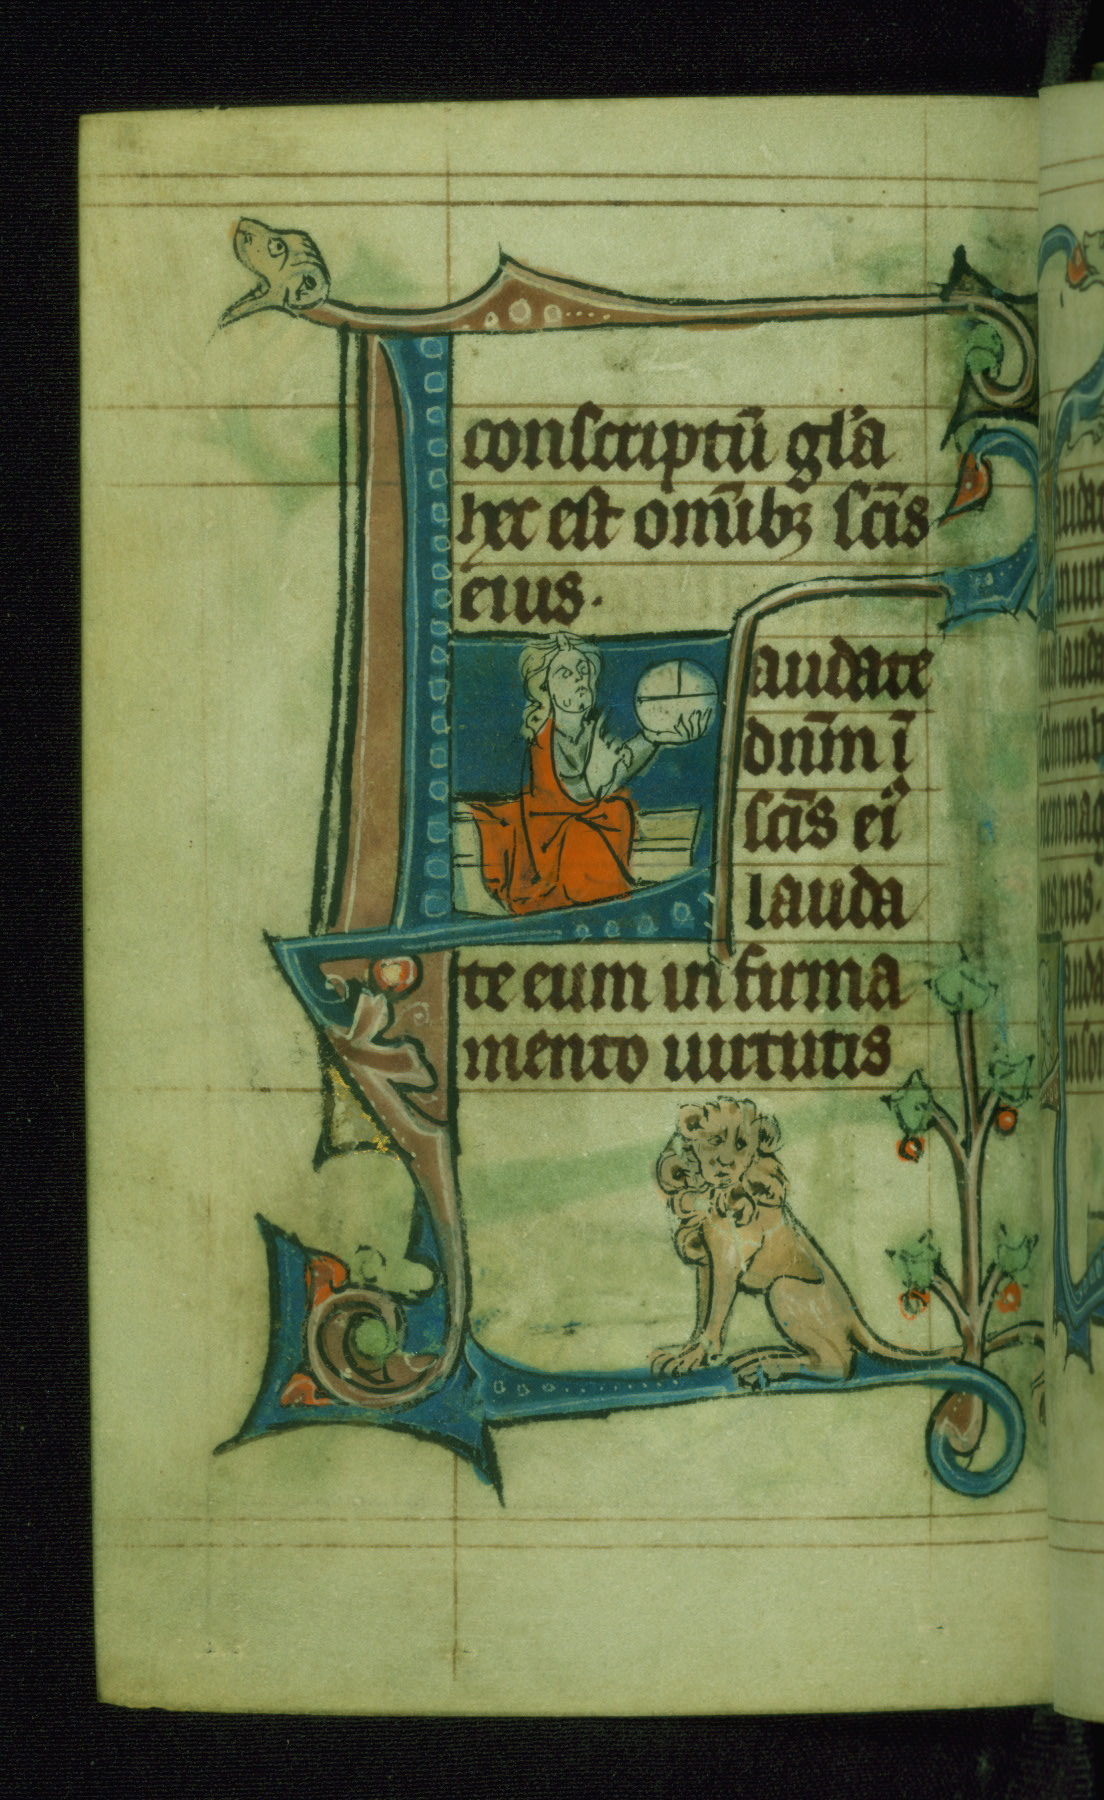 conscriptū gl'a
hec est omībꝫ scīs
eius.
audate
dnm̄ ī
scīs ei'
lauda
te eum in firma
mento uirtutis